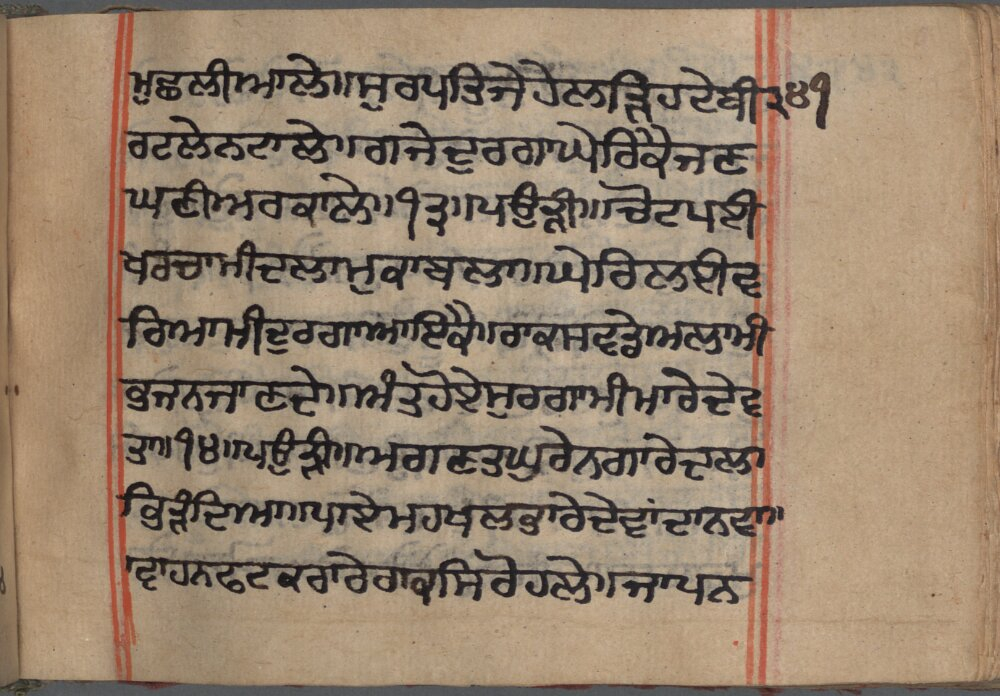 ਮੁਛਲੀਆਲੇ॥ਸੁਰਪਤਿਜੇਹੇਲੜਿਹਟੇਬੀ ੨੪੧
ਰਟਲੇਨਟਾਲੇ॥ਗਜੇਦੁਰਗਾਘੇਰਿਕੈਜਣ
ਘਣੀਅਰਕਾਲੇ॥੧੩॥ਪਉੜੀ॥ਚੋਟਪਈ
ਖਰਚਾਮੀਦਲਾਮੁਕਾਬਲਾ॥ਘੇਰਿਲਈਵ
ਰਿਆਮੀਦੁਰਗਾਆਇਕੈ॥ਰਾਕਸਵਡੇਅਲਾਮੀ
ਭਜਨਜਾਣਦੇ॥ਅੰਤੁਹੋਏਸੁਰਗਾਮੀਮਾਰੇਦੇਵ
ਤਾ॥੧੪॥ਪਉੜੀ॥ਅਗਣਤਘੁਰੇਨਗਾਰੇਦਲਾ
ਭਿੜੰਦਿਆ॥ਪਾਏਮਹਖਲਭਾਰੇਦੇਵਾਂਦਾਨਵਾ॥
ਵਾਹਨਫਟਕਰਾਰੇਰਾਕਸਿਰੋਹਲੇ॥ਜਾਪਨ